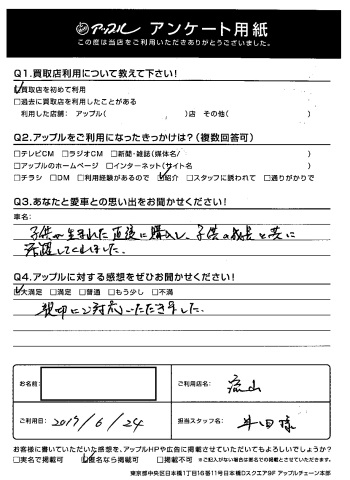 アップル アンケート用紙
この度は当店をご利用いただきありがとうございました。
Q1.買取店利用について教えて下さい！
☑買取店を初めて利用
□過去に買取店を利用したことがある
利用した店舗： アップル( )店 その他( )
Q2.アップルをご利用になったきっかけは？(複数回答可)
□テレビCM □ラジオCM □新聞・雑誌(媒体名/ )
□アップルのホームページ □インターネット(サイト名 )
□チラシ □DM □利用経験があるので ☑紹介 □スタッフに誘われて □通りがかりで
Q3.あなたと愛車との思い出をお聞かせください！
車名：
子供が生まれた直後に購入し、子供の成長と共に
活躍してくれました。
Q4.アップルに対する感想をぜひお聞かせください！
☑大満足 □満足 □普通 □もう少し □不満
親切にご対応いただきました。
お名前：
ご利用店名： 流山
ご利用日： 2017/6/24
担当スタッフ名： 井田様
お客様に書いていただいた感想を、アップルHPや広告に掲載させていただいてもよろしいでしょうか？
□実名で掲載可 ☑匿名なら掲載可 □掲載不可 ※ご記入がない場合は匿名での掲載とさせていただきます。
東京都中央区日本橋1丁目16番11号日本橋Dスクエア9F アップルチェーン本部